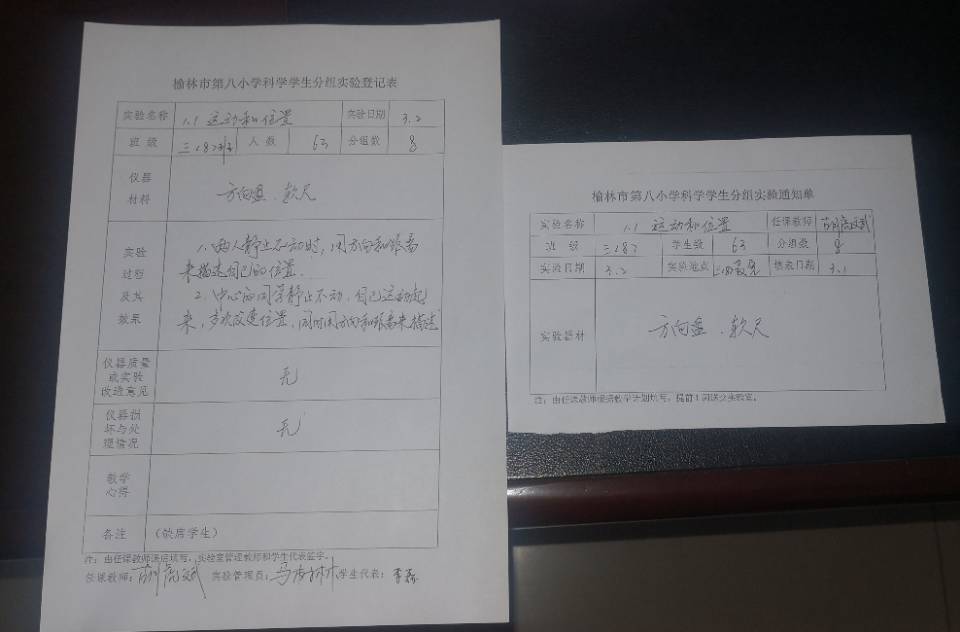 榆林市第八小学科学学生分组实验登记表
实验名称 1.1 运动和位置 实验日期 3.2
班 级 三(8)班 人 数 63 分组数 8
仪器
材料
方向盘、软尺
实验
过程
及其
效果
1.两人静止不动时,用方向和距离
来描述自己的位置.
2.中心的同学静止不动,自己运动起
来,多次改变位置,同时用方向和距离来描述
仪器质量
或实验
改进意见
无
仪器损
坏与处
理情况
无
教学
心得
备注 (缺席学生)
注:由任课教师课后填写,实验室管理教师和学生代表签字。
任课教师: 实验管理员: 学生代表:
榆林市第八小学科学学生分组实验通知单
实验名称 1.1 运动和位置 任课教师
班 级 三(8) 学生数 63 分组数 8
实验日期 3.2 实验地点 填表日期 3.1
实验器材 方向盘、软尺
注:由任课教师根据教学计划填写,提前1周送交实验室。